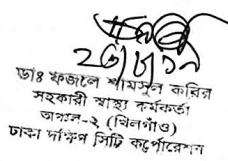 ২৬/৮/১৯
ডাঃ ফজলে শামসুল কবির
সহকারী স্বাস্থ্য কর্মকর্তা
অঞ্চল-২ (খিলগাঁও)
ঢাকা দক্ষিণ সিটি কর্পোরেশন